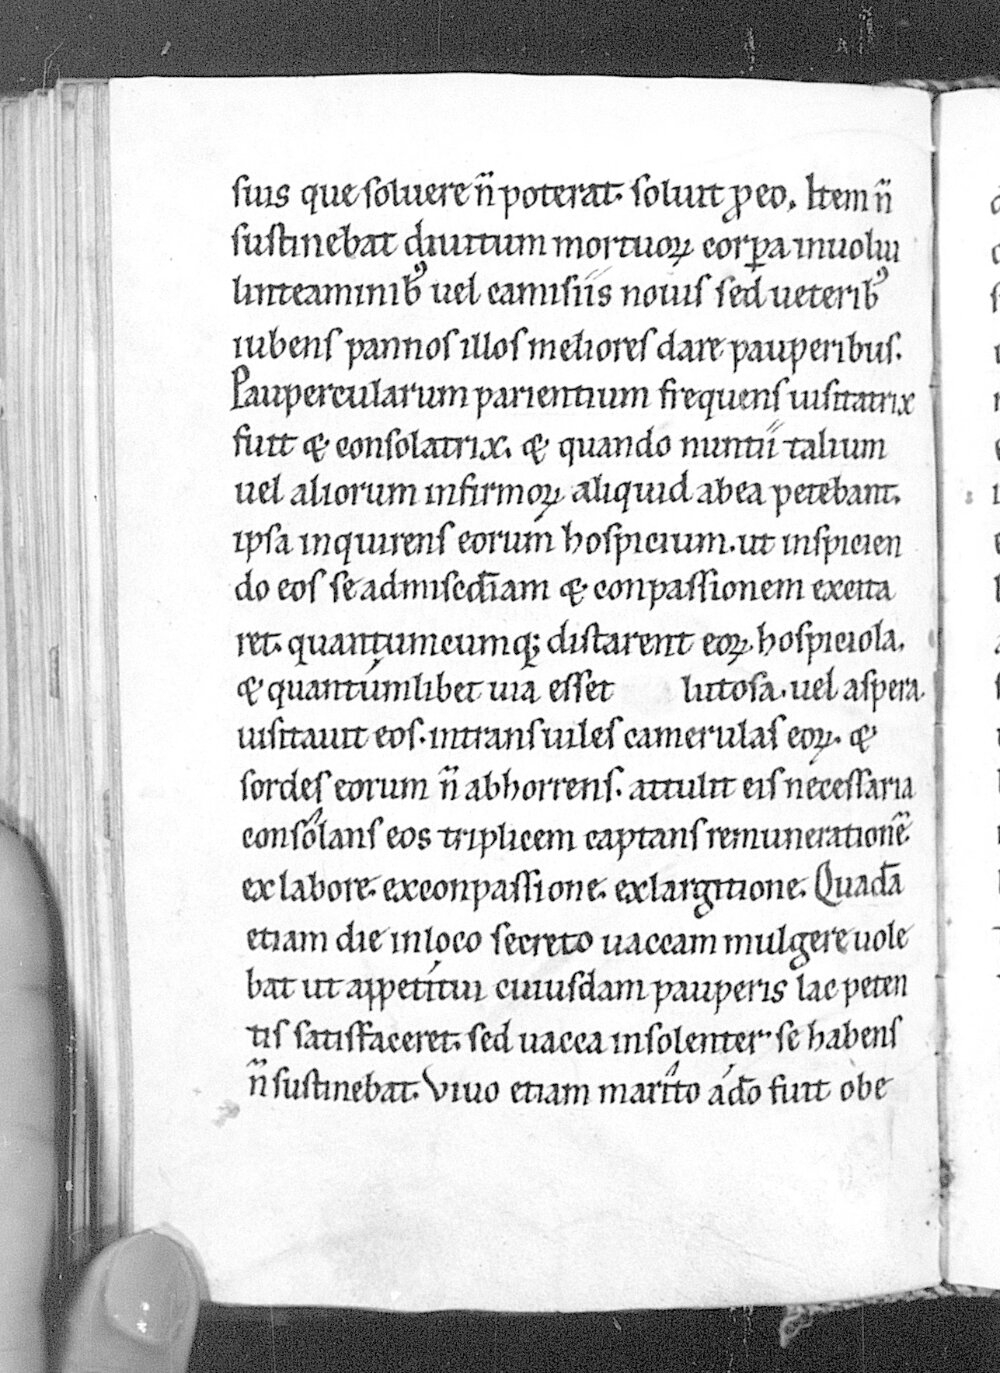 suis que soluere n̄ poterat. soluit ꝓ eo. Item n̄
sustinebat diuitum mortuoꝝ corꝑa inuolui
linteaminibꝰ uel camisiis nouis sed ueteribꝰ
iubens pannos illos meliores dare pauperibus.
Paupercularum parientium frequens uisitatrix
fuit & consolatrix. & quando nuntii talium
uel aliorum infirmoꝝ aliquid ab ea petebant.
ipsa inquirens eorum hospicium. ut inspicien
do eos se ad misc̄diam & conpassionem excita
ret. quantumcumq; distarent eoꝝ hospiciola.
& quantumlibet uia esset lutosa. uel aspera.
uisitauit eos. intrans uiles camerulas eoꝝ. &
sordes eorum n̄ abhorrens. attulit eis necessaria
consolans eos triplicem captans remunerationē.
ex labore. ex conpassione. ex largitione. Quadā
etiam die in loco secreto uaccam mulgere uole
bat ut appetitui cuiusdam pauperis lac peten
tis satisfaceret. sed uacca insolenter se habens
n̄ sustinebat. Viuo etiam marito adō fuit obe